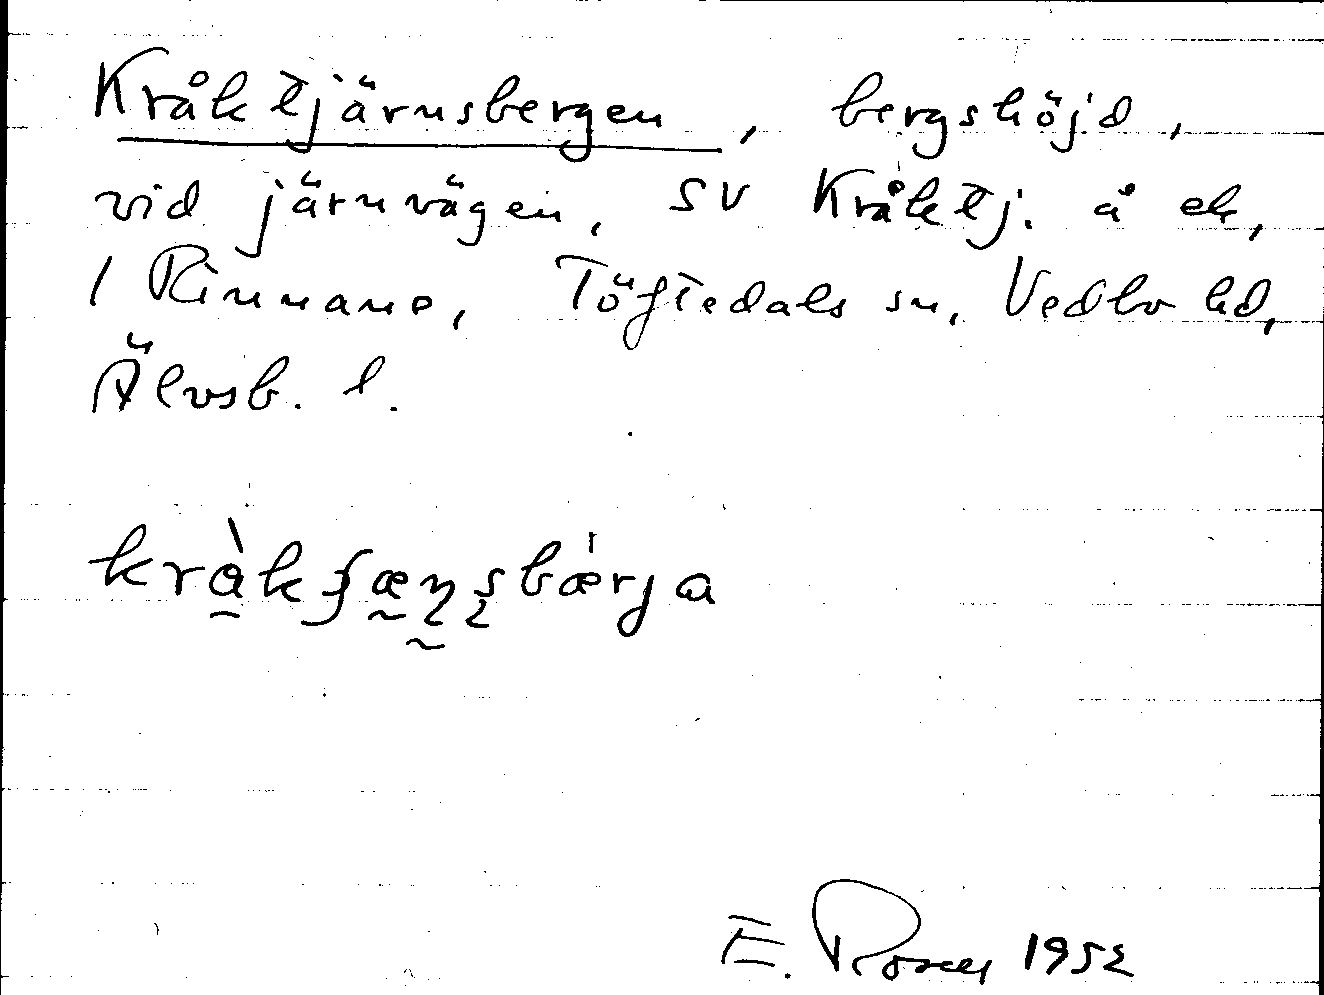 Kråktjärnsbergen, bergshöjd,
vid järnvägen, SV Kråktj. å ek,
1 Rinnane, Töftedals sn, Vedbo hd,
Älvsb. l.
E. Rosell 1952